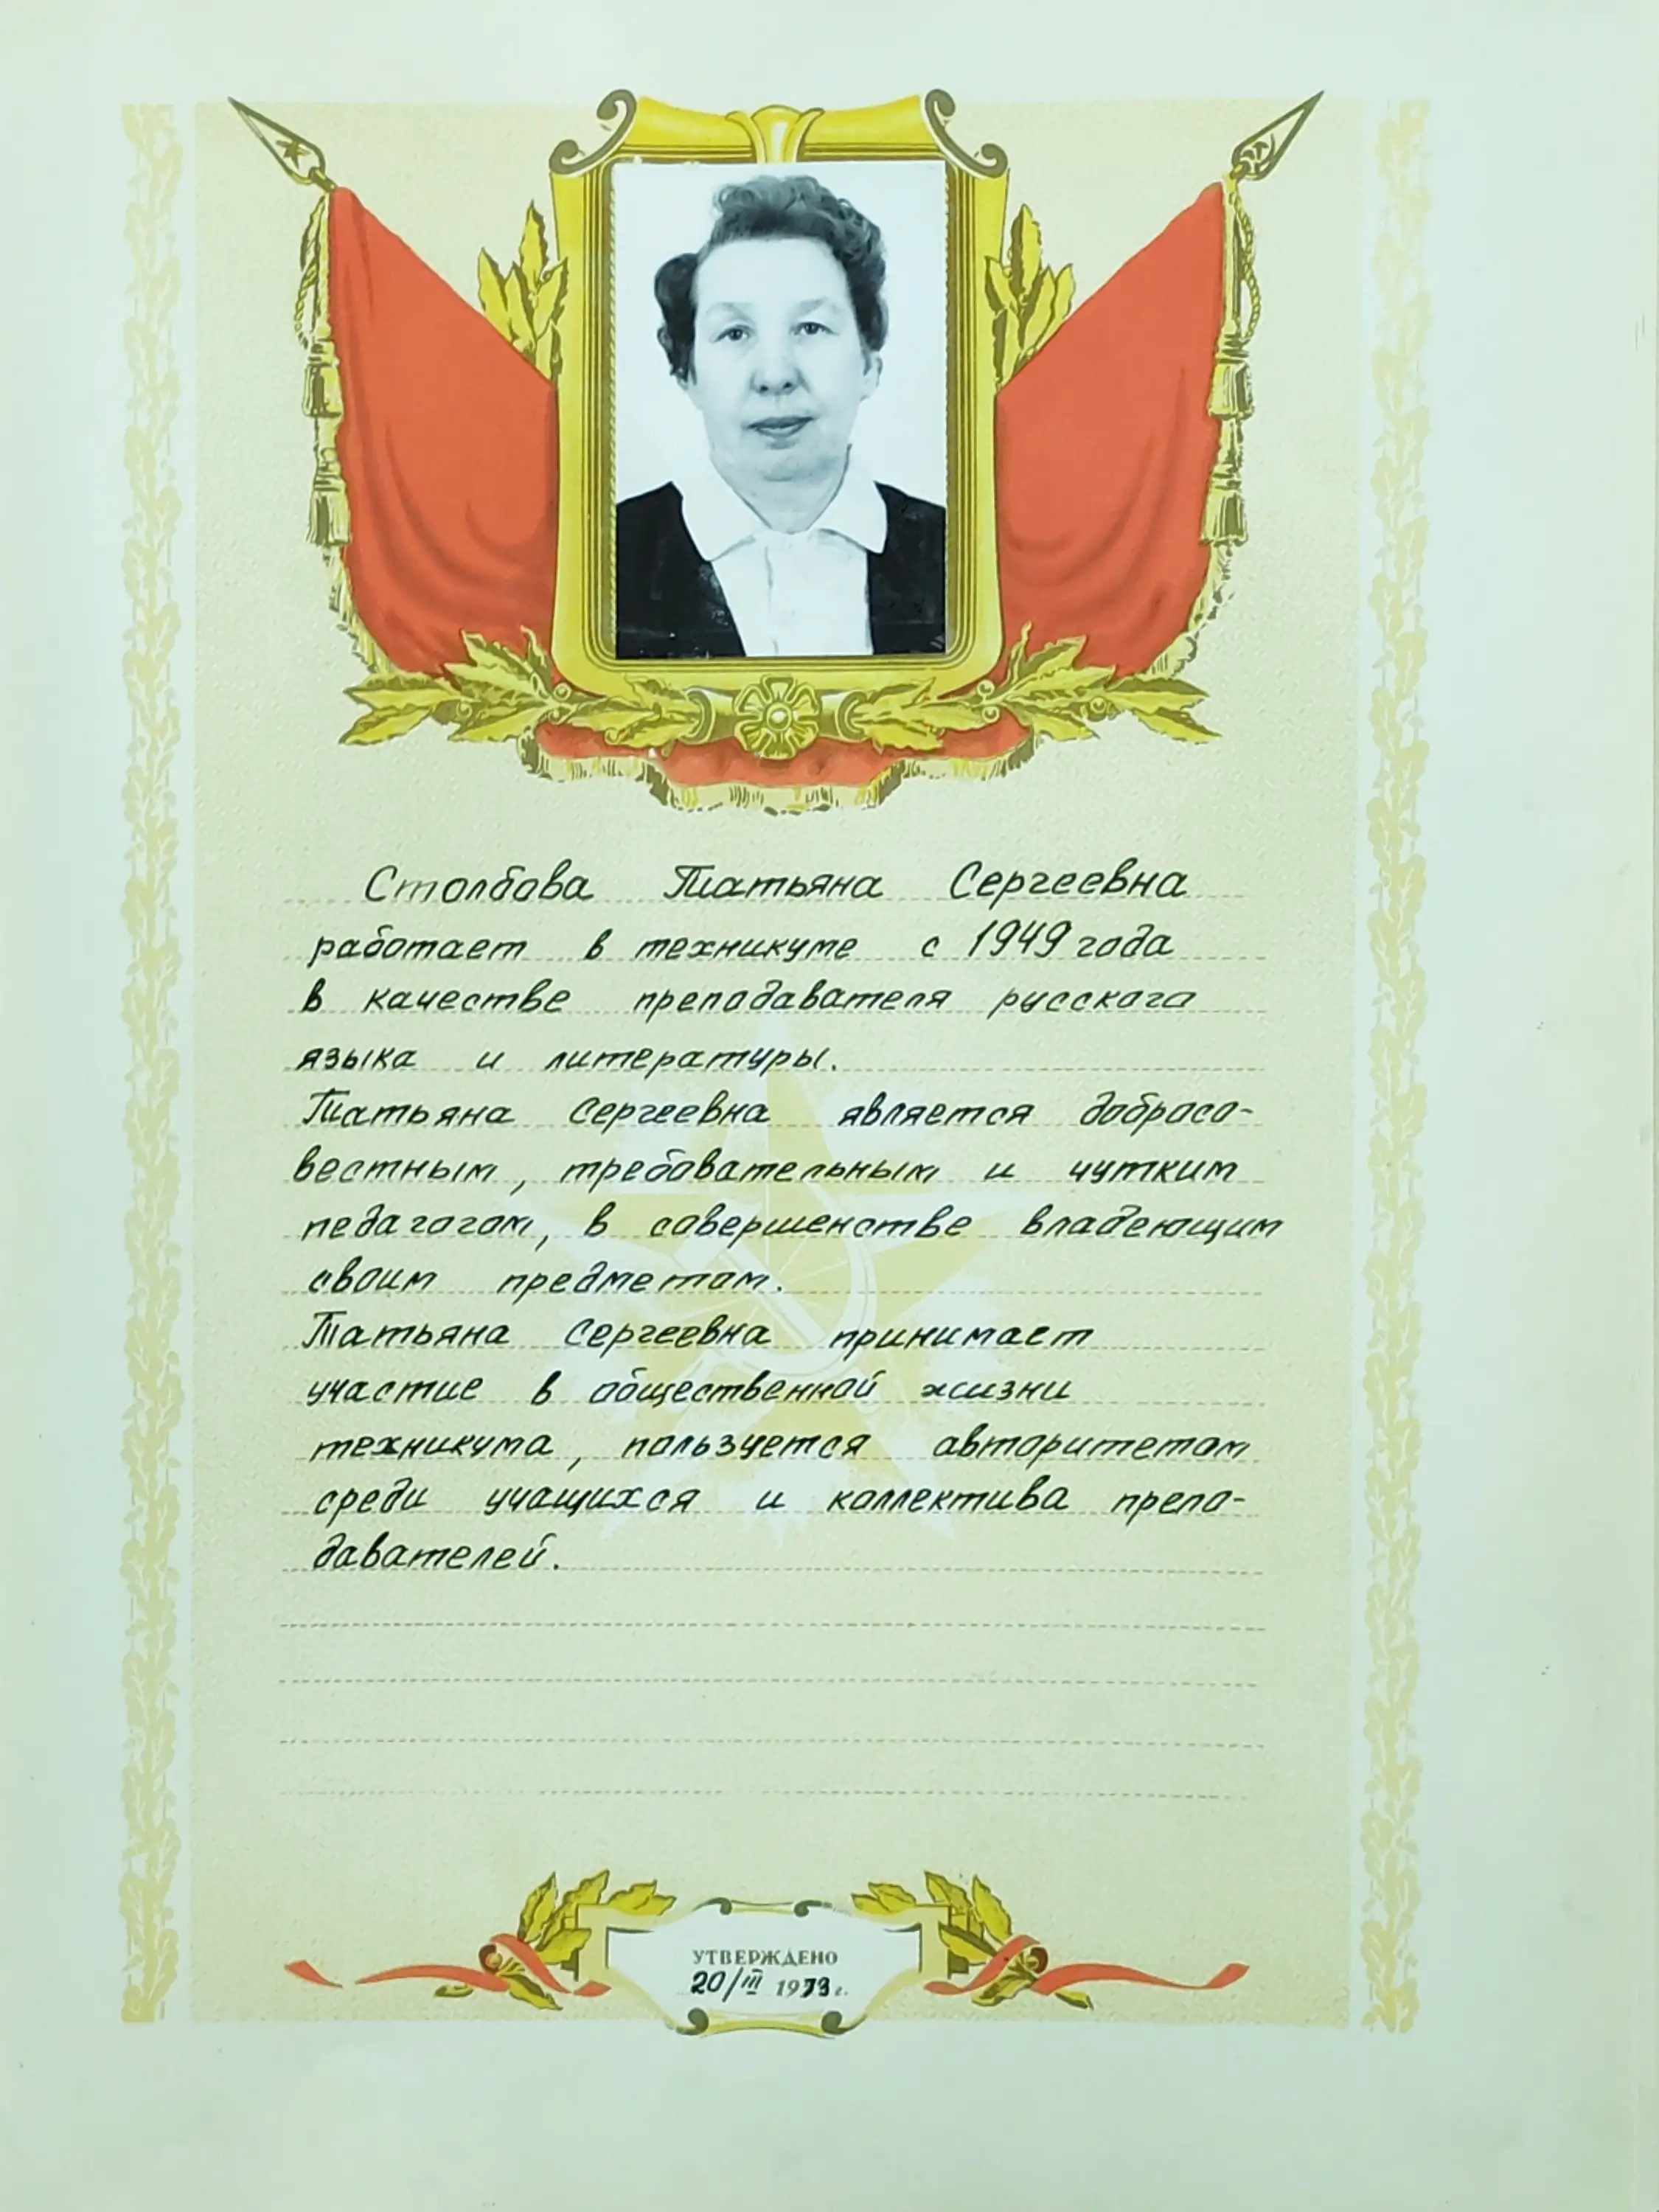 Столбова Татьяна Сергеевна
работает в техникуме с 1949 года
в качестве преподавателя русского
языка и литературы.
Татьяна Сергеевна является добросо-
вестным, требовательным и чутким
педагогом, в совершенстве владеющим
своим предметом.
Татьяна Сергеевна принимает
участие в общественной жизни
техникума, пользуется авторитетом
среди учащихся и коллектива препо-
давателей.
УТВЕРЖДЕНО
20/III 1973 г.